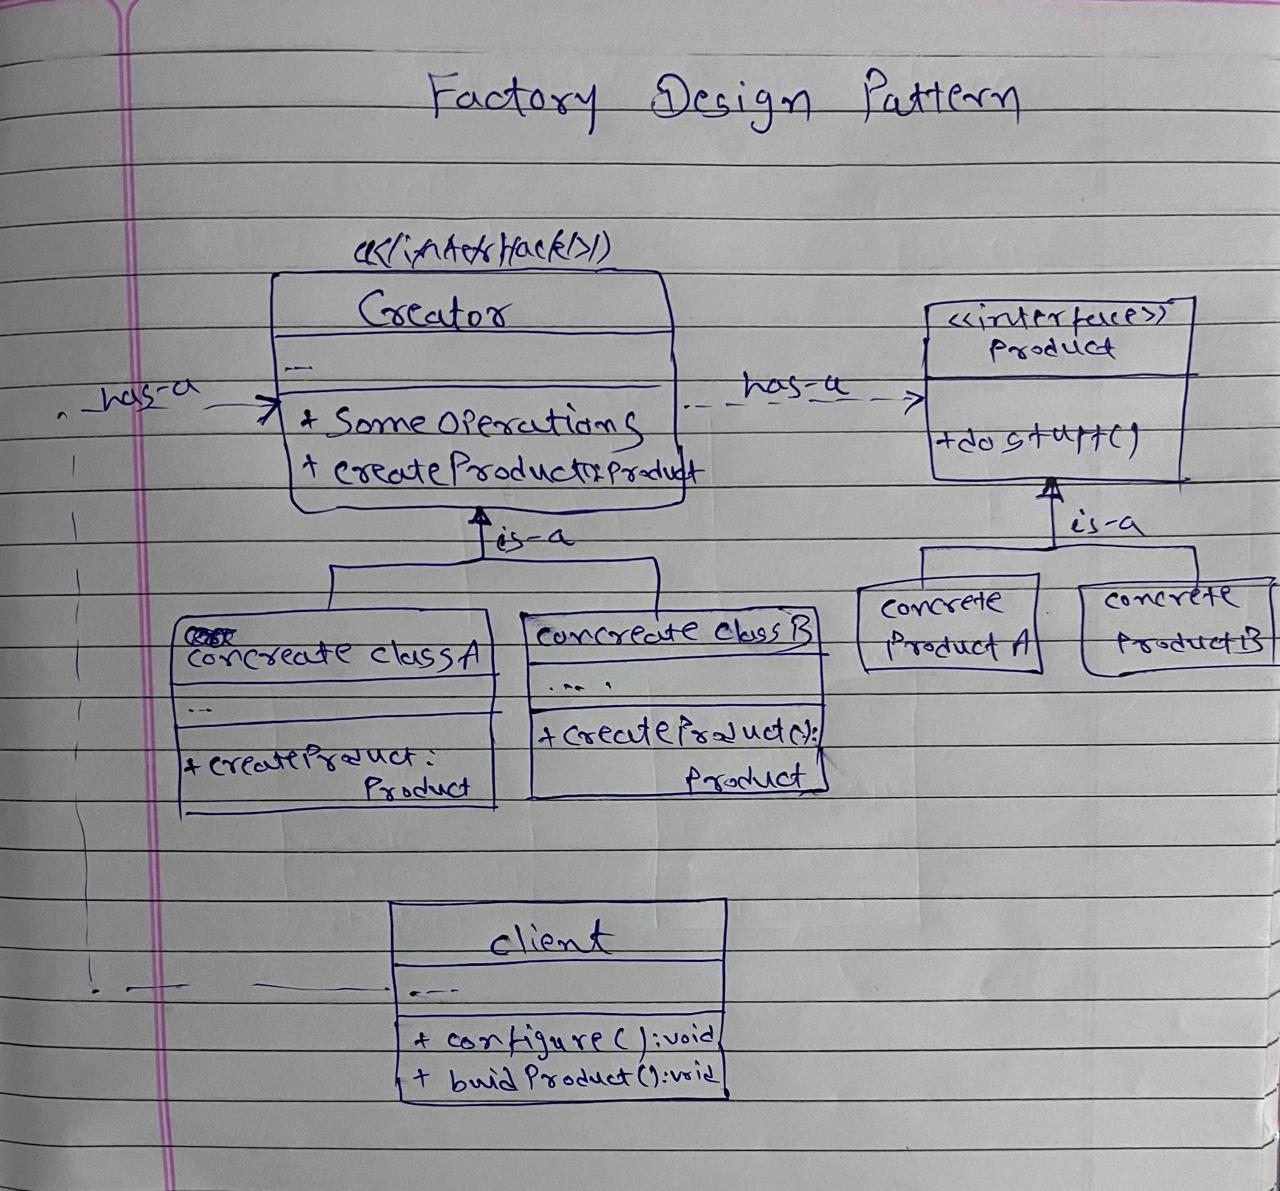 Factory Design Pattern
Creator
...
+ Some Operations
+ createProduct():Product
has-a
has-a
<<interface>>
Product
+dostuff()
is-a
is-a
concreate class A
...
+ createProduct:
Product
concreate class B
....
+ createProduct():
Product
concrete
Product A
concrete
Product B
client
....
+ configure():void
+ buidProduct():void